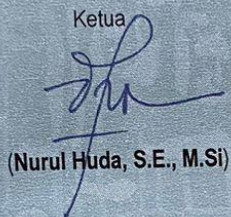 Ketua
(Nurul Huda, S.E., M.Si)